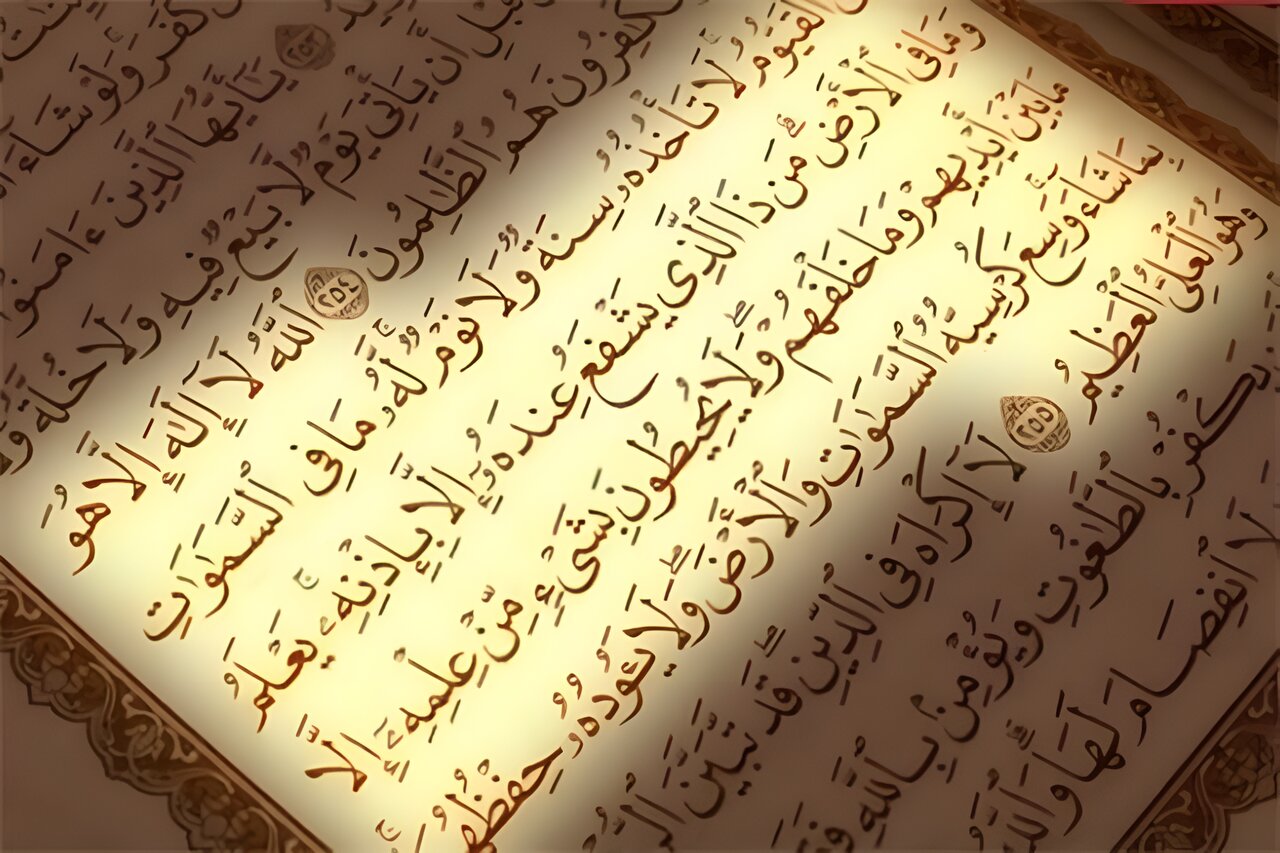 كَفَرَ وَلَوْ شَاءَ
٢٥٣ يَٰٓأَيُّهَا ٱلَّذِينَ ءَامَنُوٓا۟
قَبْلِ أَن يَأْتِىَ يَوْمٌ لَّا بَيْعٌ فِيهِ وَلَا خُلَّةٌ
ٱلْكَٰفِرُونَ هُمُ ٱلظَّٰلِمُونَ ٢٥٤ ٱللَّهُ لَآ إِلَٰهَ إِلَّا هُوَ
ٱلْقَيُّومُ لَا تَأْخُذُهُۥ سِنَةٌ وَلَا نَوْمٌ لَّهُۥ مَا فِى ٱلسَّمَٰوَٰتِ
وَمَا فِى ٱلْأَرْضِ مَن ذَا ٱلَّذِى يَشْفَعُ عِندَهُۥٓ إِلَّا بِإِذْنِهِۦ يَعْلَمُ
مَا بَيْنَ أَيْدِيهِمْ وَمَا خَلْفَهُمْ وَلَا يُحِيطُونَ بِشَىْءٍ مِّنْ عِلْمِهِۦٓ إِلَّا
بِمَا شَآءَ وَسِعَ كُرْسِيُّهُ ٱلسَّمَٰوَٰتِ وَٱلْأَرْضَ وَلَا يَـُٔودُهُۥ حِفْظُهُمَا
وَهُوَ ٱلْعَلِىُّ ٱلْعَظِيمُ ٢٥٥ لَآ إِكْرَاهَ فِى ٱلدِّينِ قَد تَّبَيَّنَ
يَكْفُرْ بِٱلطَّٰغُوتِ وَيُؤْمِنۢ بِٱللَّهِ
لَا ٱنفِصَامَ لَهَا وَٱللَّهُ